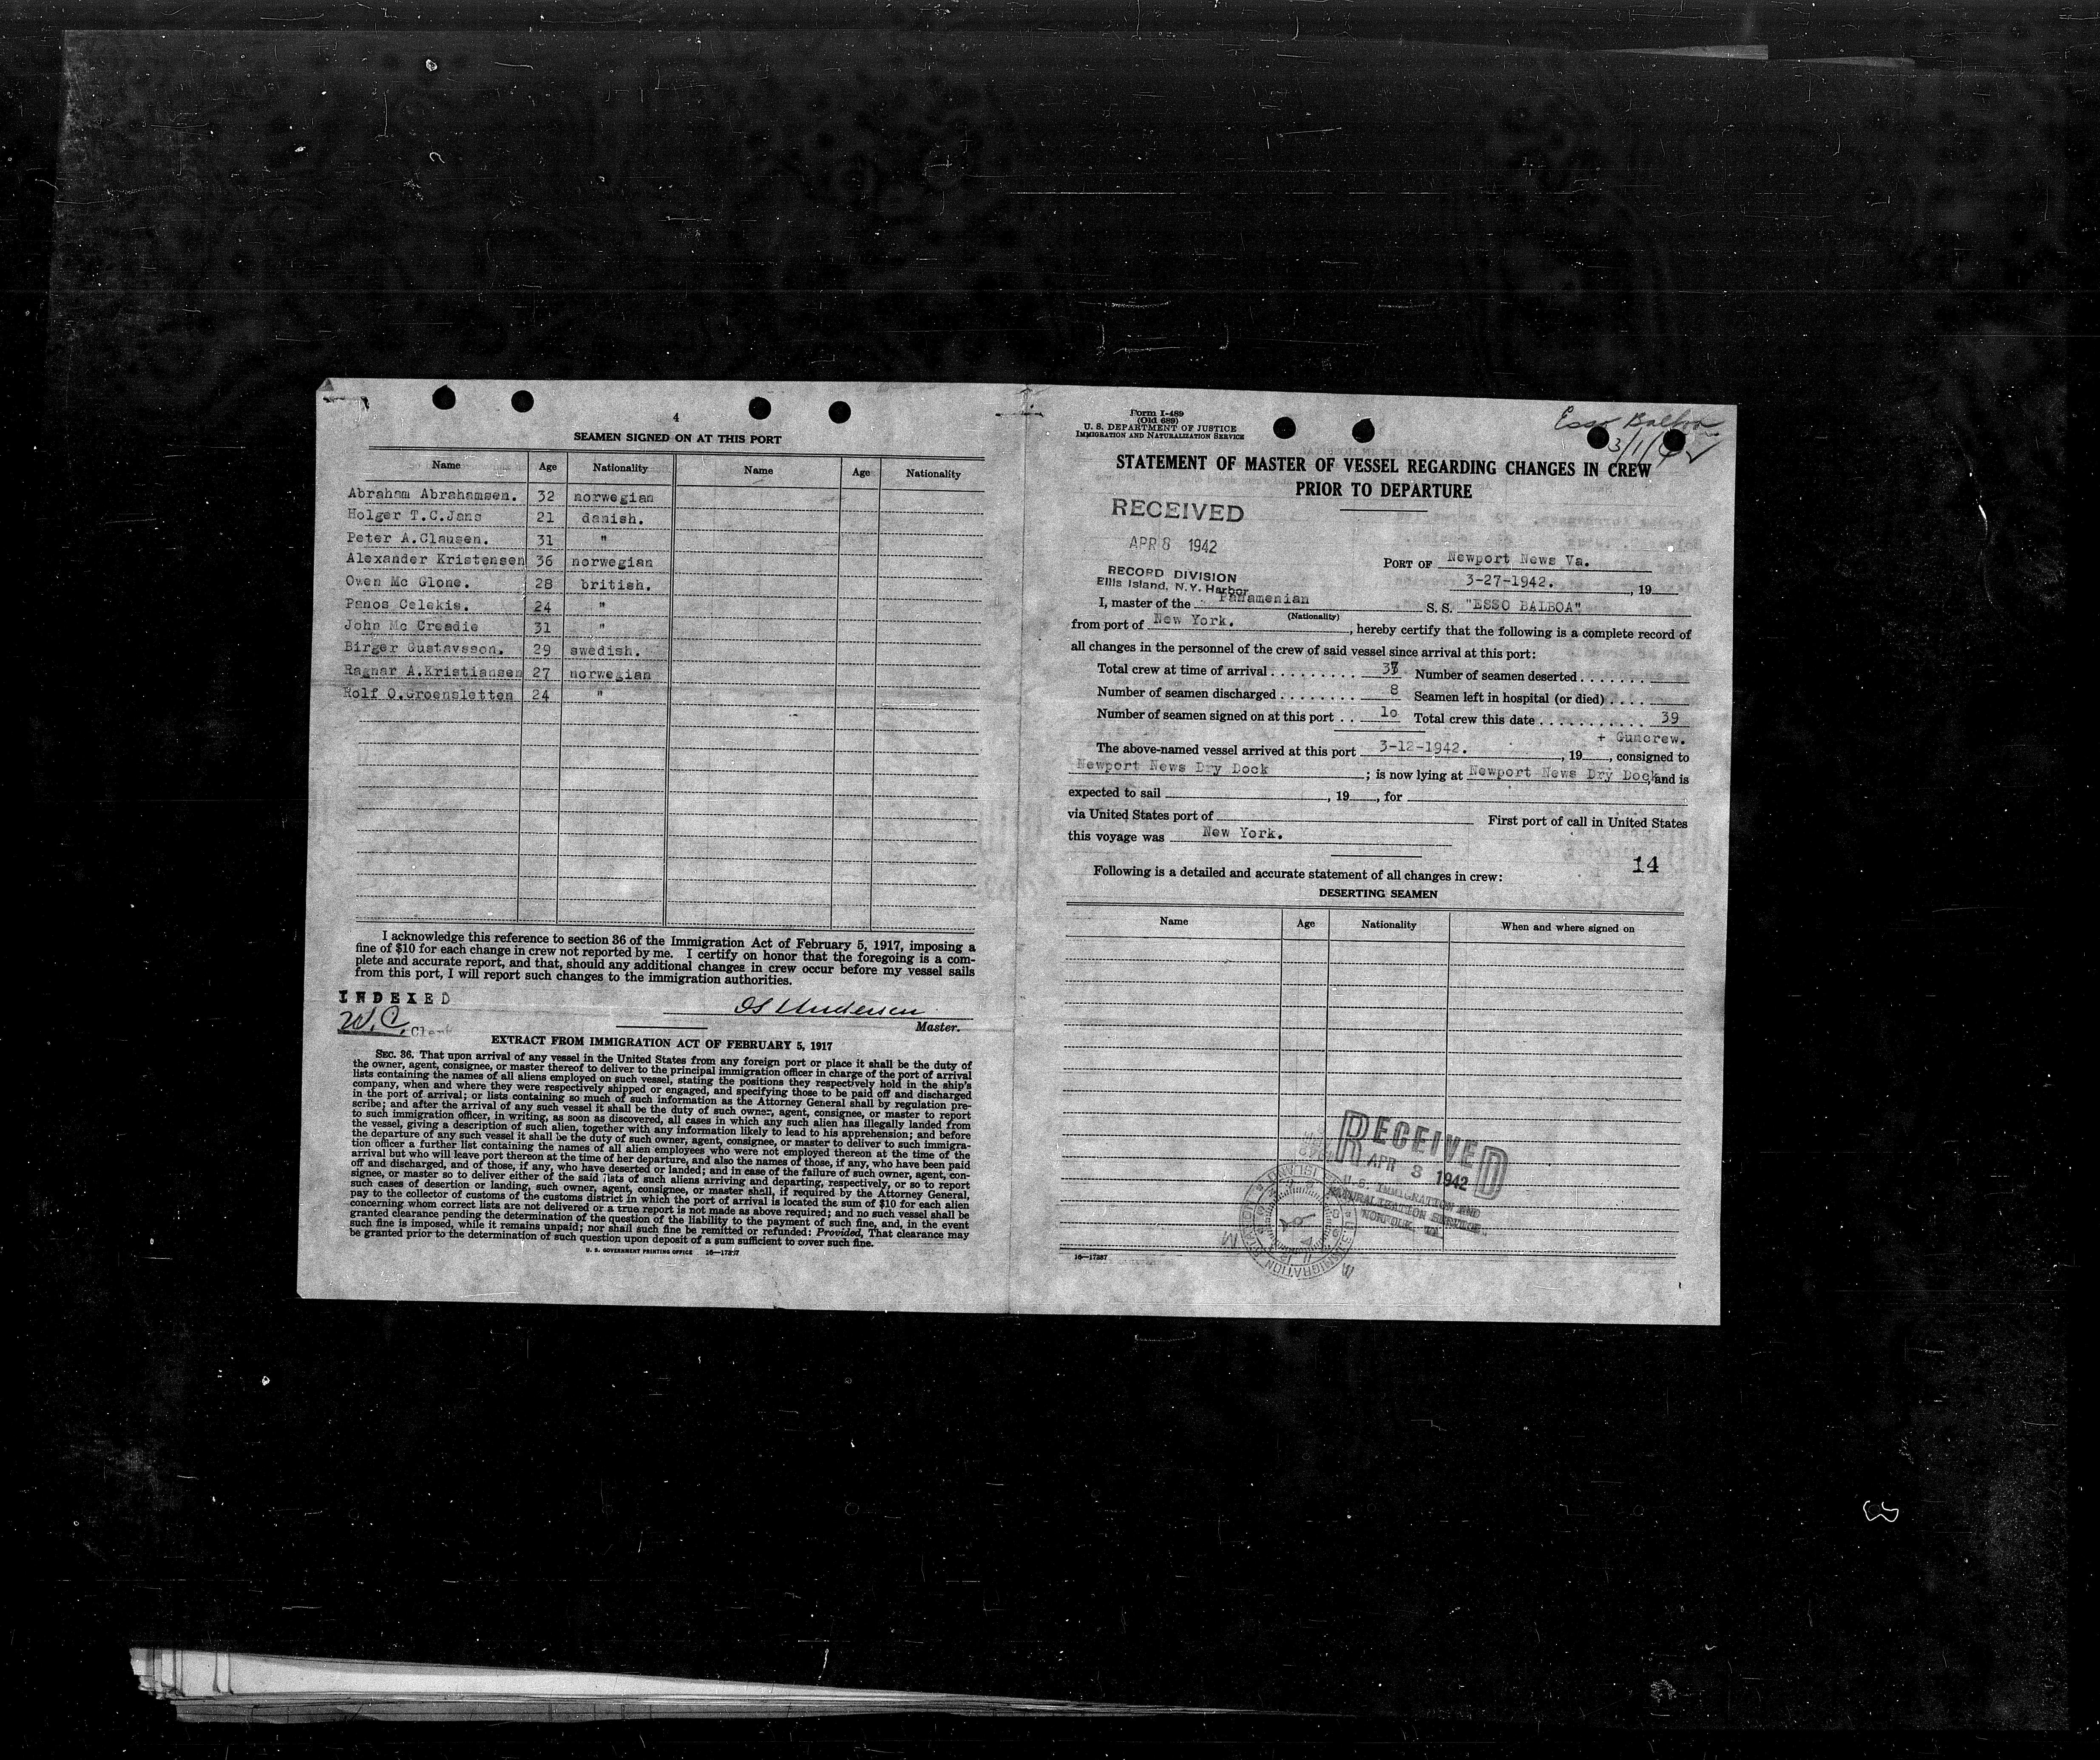 4
SEAMEN SIGNED ON AT THIS PORT
Name Age Nationality Name Age Nationality
Abraham Abrahamsen. 32 norwegian
Holger T.C.Jans 21 danish.
Peter A.Clausen. 31 "
Alexander Kristensen 36 norwegian
Owen Mc Glone. 28 british.
Panos Celekis. 24 "
John Mc Creadie 31 "
Birger Gustavsson. 29 swedish.
Ragnar A.Kristiansen 27 norwegian
Rolf O.Groensletten 24 "
I acknowledge this reference to section 36 of the Immigration Act of February 5, 1917, imposing a
fine of $10 for each change in crew not reported by me. I certify on honor that the foregoing is a com-
plete and accurate report, and that, should any additional changes in crew occur before my vessel sails
from this port, I will report such changes to the immigration authorities.
INDEXED
W.C. Clerk
Andersen
Master.
EXTRACT FROM IMMIGRATION ACT OF FEBRUARY 5, 1917
SEC. 36. That upon arrival of any vessel in the United States from any foreign port or place it shall be the duty of
the owner, agent, consignee, or master thereof to deliver to the principal immigration officer in charge of the port of arrival
lists containing the names of all aliens employed on such vessel, stating the positions they respectively hold in the ship's
company, when and where they were respectively shipped or engaged, and specifying those to be paid off and discharged
in the port of arrival; or lists containing so much of such information as the Attorney General shall by regulation pre-
scribe; and after the arrival of any such vessel it shall be the duty of such owner, agent, consignee, or master to report
to such immigration officer, in writing, as soon as discovered, all cases in which any such alien has illegally landed from
the vessel, giving a description of such alien, together with any information likely to lead to his apprehension; and before
the departure of any such vessel it shall be the duty of such owner, agent, consignee, or master to deliver to such immigra-
tion officer a further list containing the names of all alien employees who were not employed thereon at the time of the
arrival but who will leave port thereon at the time of her departure, and also the names of those, if any, who have been paid
off and discharged, and of those, if any, who have deserted or landed; and in case of the failure of such owner, agent, con-
signee, or master so to deliver either of the said lists of such aliens arriving and departing, respectively, or so to report
such cases of desertion or landing, such owner, agent, consignee, or master shall, if required by the Attorney General,
pay to the collector of customs of the customs district in which the port of arrival is located the sum of $10 for each alien
concerning whom correct lists are not delivered or a true report is not made as above required; and no such vessel shall be
granted clearance pending the determination of the question of the liability to the payment of such fine, and, in the event
such fine is imposed, while it remains unpaid; nor shall such fine be remitted or refunded: Provided, That clearance may
be granted prior to the determination of such question upon deposit of a sum sufficient to cover such fine.
U. S. GOVERNMENT PRINTING OFFICE 16—17387
Form I-489
(Old 689)
U. S. DEPARTMENT OF JUSTICE
IMMIGRATION AND NATURALIZATION SERVICE
Esso Balboa
STATEMENT OF MASTER OF VESSEL REGARDING CHANGES IN CREW
PRIOR TO DEPARTURE
RECEIVED
APR 8 1942
RECORD DIVISION
Ellis Island, N.Y. Harbor
PORT OF Newport News Va.
3-27-1942. , 19
I, master of the Panamenian S. S. "ESSO BALBOA"
(Nationality)
from port of New York. , hereby certify that the following is a complete record of
all changes in the personnel of the crew of said vessel since arrival at this port:
Total crew at time of arrival 37 Number of seamen deserted
Number of seamen discharged 8 Seamen left in hospital (or died)
Number of seamen signed on at this port 10 Total crew this date 39
+ Guncrew.
The above-named vessel arrived at this port 3-12-1942. , 19 , consigned to
Newport News Dry Dock ; is now lying at Newport News Dry Dock, and is
expected to sail , 19 , for
via United States port of First port of call in United States
this voyage was New York.
14
Following is a detailed and accurate statement of all changes in crew:
DESERTING SEAMEN
Name Age Nationality When and where signed on
RECEIVED
APR 8 1942
U.S. IMMIGRATION AND
NATURALIZATION SERVICE,
NORFOLK, VA
16—17387